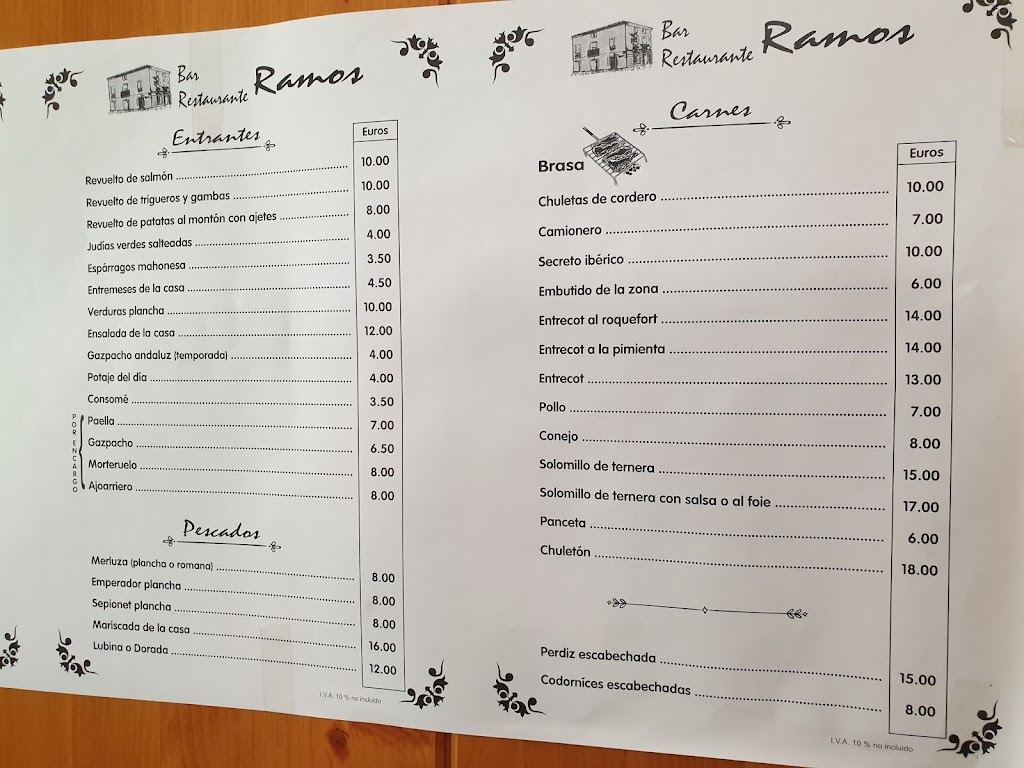 Bar
Restaurante Ramos
Entrantes
Euros
Revuelto de salmón ........ 10.00
Revuelto de trigueros y gambas ........ 10.00
Revuelto de patatas al montón con ajetes ........ 8.00
Judías verdes salteadas ........ 4.00
Espárragos mahonesa ........ 3.50
Entremeses de la casa ........ 4.50
Verduras plancha ........ 10.00
Ensalada de la casa ........ 12.00
Gazpacho andaluz (temporada) ........ 4.00
Potaje del día ........ 4.00
Consomé ........ 3.50
POR ENCARGO
Paella ........ 7.00
Gazpacho ........ 6.50
Morteruelo ........ 8.00
Ajoarriero ........ 8.00
Pescados
Merluza (plancha o romana) ........ 8.00
Emperador plancha ........ 8.00
Sepionet plancha ........ 8.00
Mariscada de la casa ........ 16.00
Lubina o Dorada ........ 12.00
I.V.A. 10 % no incluido
Bar
Restaurante Ramos
Carnes
Brasa
Euros
Chuletas de cordero ........ 10.00
Camionero ........ 7.00
Secreto ibérico ........ 10.00
Embutido de la zona ........ 6.00
Entrecot al roquefort ........ 14.00
Entrecot a la pimienta ........ 14.00
Entrecot ........ 13.00
Pollo ........ 7.00
Conejo ........ 8.00
Solomillo de ternera ........ 15.00
Solomillo de ternera con salsa o al foie ........ 17.00
Panceta ........ 6.00
Chuletón ........ 18.00
Perdiz escabechada ........ 15.00
Codornices escabechadas ........ 8.00
I.V.A. 10 % no incluido